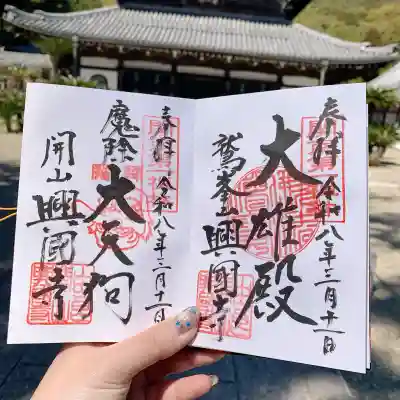 奉拝 令和八年三月十一日
大雄殿
鷲峯山興國寺
奉拝 令和八年三月十一日
魔除 大天狗
開山興國寺